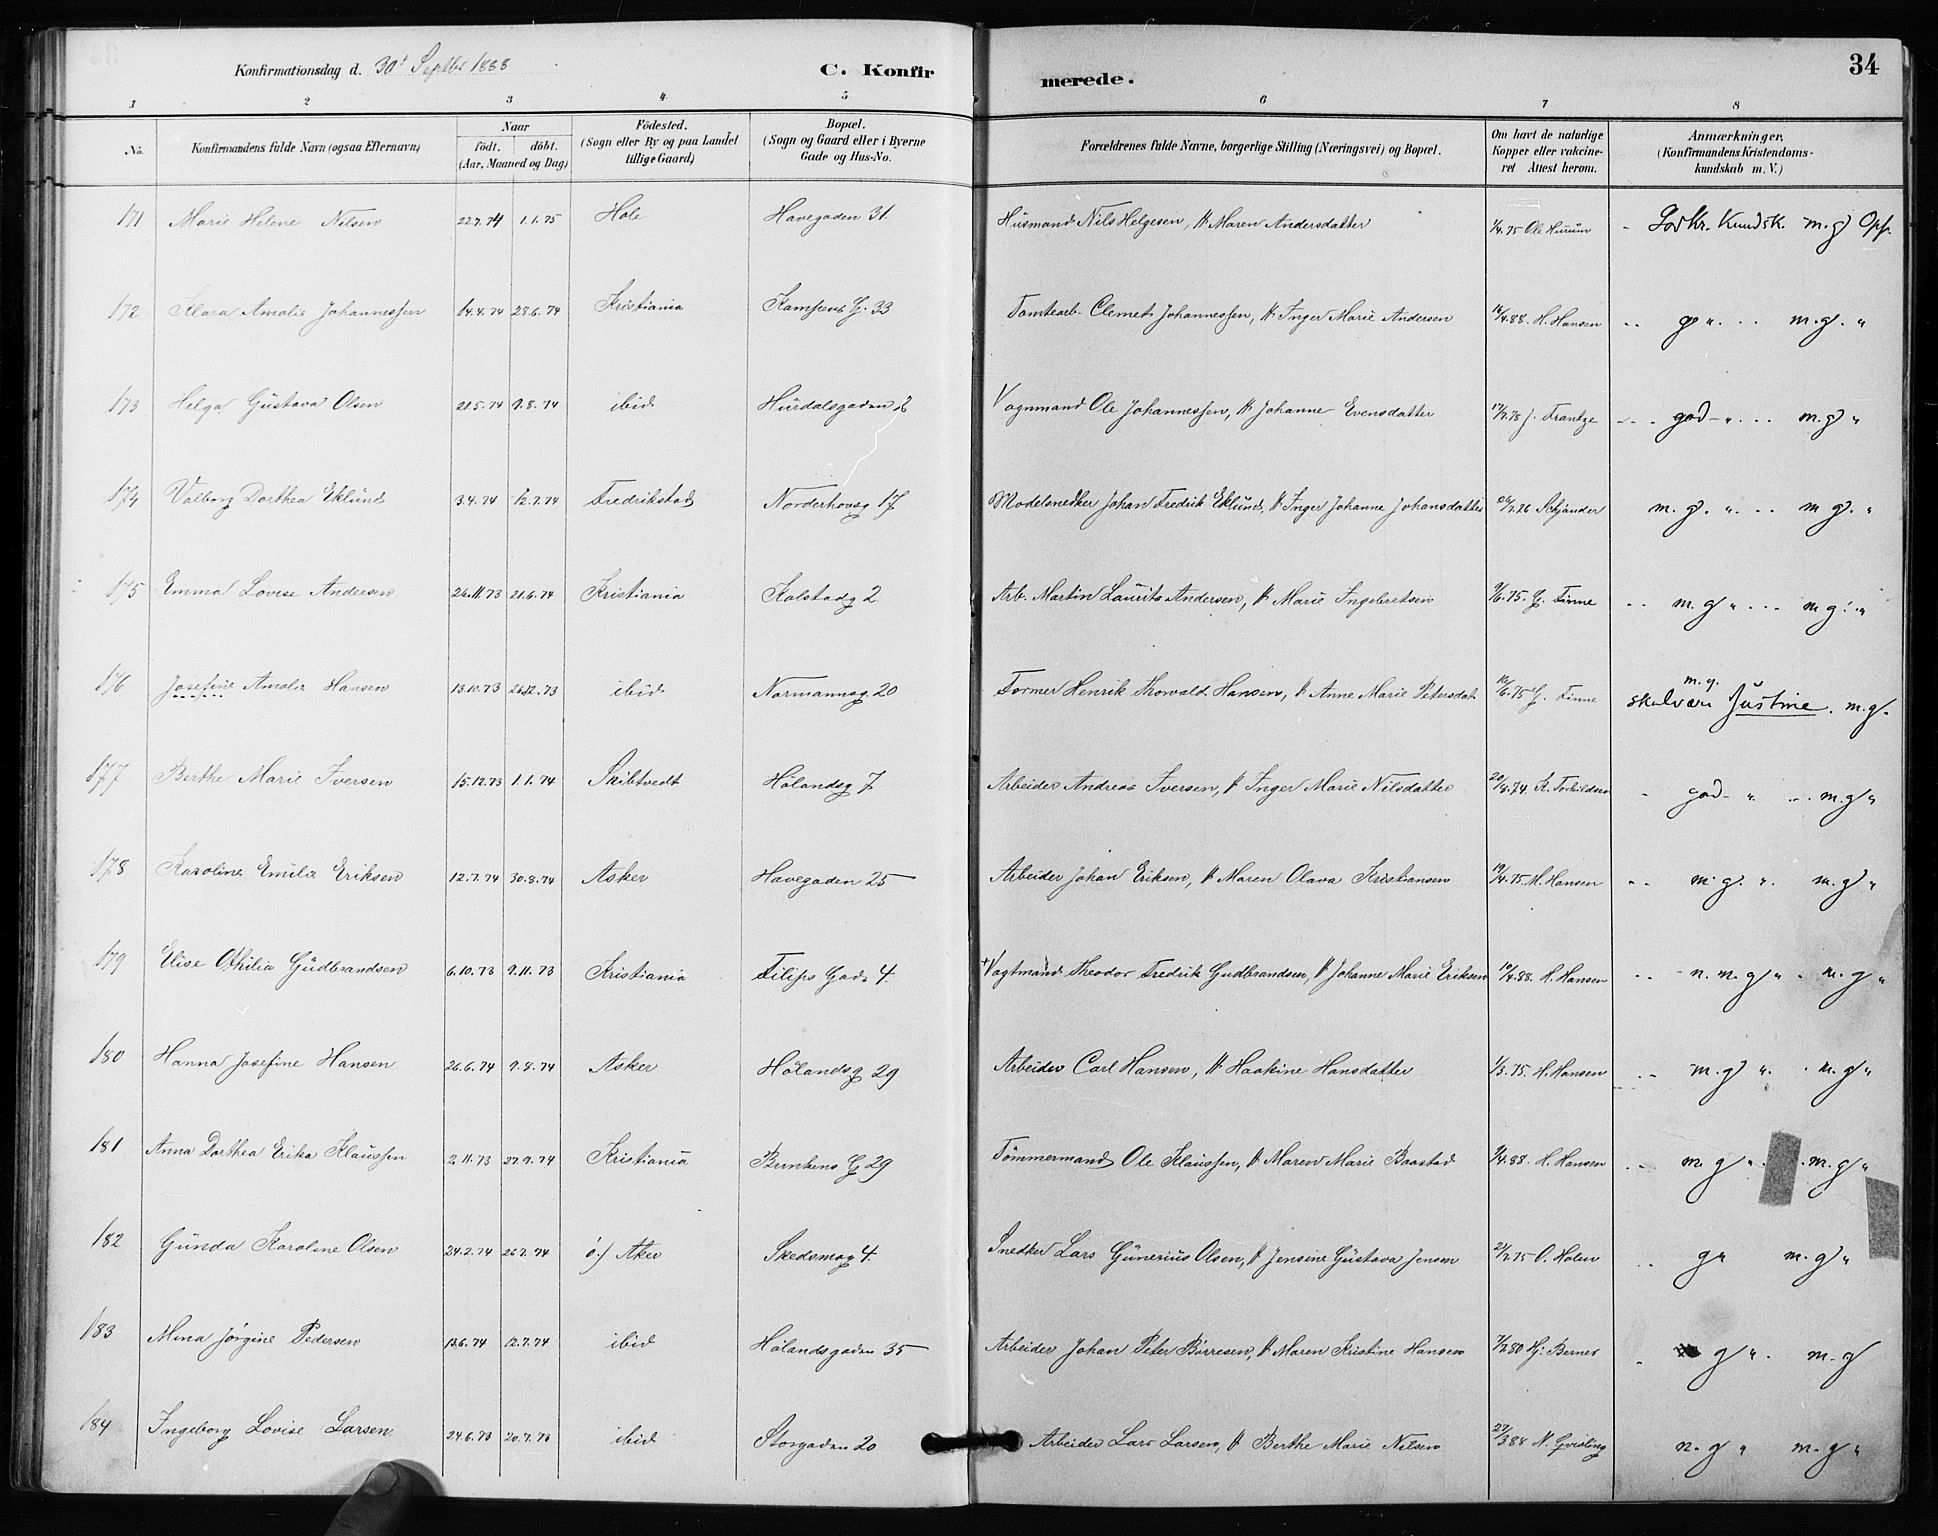 Konfirmationsdag d. 30te Septbr 1888
C. Konfirmerede.
34
1 2 3 4 5 6 7 8
No. Konfirmandens fulde Navn (ogsaa Efternavn) Naar födt. döbt. (Aar, Maaned og Dag) Födested. (Sogn eller By og paa Landet tillige Gaard) Bopæl. (Sogn og Gaard eller i Byerne Gade og Hus-No. Forældrenes fulde Navne, borgerlige Stilling (Næringsvei) og Bopæl. Om havt de naturlige Kopper eller vakcineret Attest herom. Anmærkninger. (Konfirmandens Kristendomskundskab m. V.)
171 Marie Helene Nilsen 22.7.74 1.1.75 Hole Havegaden 31. Husmand Nils Helgesen, & Maren Andersdatter 1/4.75 Ole Hurum God Kr. Kundsk. m.g. Opf.
172 Klara Amalie Johannessen 14.4.74 28.6.74 Kristiania Kampens G. 33 Tomtearb. Clemet Johannessen, & Inger Marie Andersen 14/4.88. H. Hansen g " m.g. "
173 Helga Gustava Olsen 21.5.74 9.8.74 ibid Hurdalsgaden 6 Vognmand Ole Johannessen, & Johanne Evensdatter 17/7.78 J. Frantze god " m.g "
174 Valborg Dorthea Eklund 3.4.74 12.7.74 Fredrikstad Norderhovsg 17 Modelsnedker Johan Fredrik Eklund, & Inger Johanne Johansdatter Schjander m.g. " m g. "
175 Emma Lovise Andersen 26.11.73 21.6.74 Kristiania Kalstadg 2 Arb. Martin Laurits Andersen, & Marie Ingebretsen 9/6.75. G. Finne m.g " m g. "
176 Josefine Amalie Hansen 13.10.73 26.12.73 ibid Normannsg. 20 Former Henrik Thorvald Hansen, & Anne Marie Petersdat 12/6.75 G. Finne m.g. skal være Justine. m.g.
177 Berthe Marie Iversen 15.12.73 1.1.74 Skibtvedt Hölandsg 7 Arbeider Andreas Iversen, & Inger Marie Nilsdatter 20/8.74. K. Torkildsen god " m.g "
178 Karoline Emilie Eriksen 12.7.74 30.8.74 Asker Havegaden 25 Arbeider Johan Eriksen, & Maren Olava Kristiansen 19/4.75 M. Hansen m.g. " m.g "
179 Elise Othilia Gudbrandsen 6.10.73 9.11.73 Kristiania Filips Gade 4. + Vagtmand Theodor Fredrik Gudbrandsen, & Johanne Marie Eriksen 10/4.88. H. Hansen n. m. g " m.g "
180 Hanna Josefine Hansen 26.6.74 9.8.74 Asker Hölandsg 29 Arbeider Carl Hansen, & Haakine Hansdatter 1/3.75. H. Hansen m.g " m.g "
181 Anna Dorthea Erika Klaussen 2.11.73 27.9.74 Kristiania Brinkens G 29 Tömmermand Ole Klaussen, & Maren Marie Baastad 9/4.88. H. Hansen m. g " m.g "
182 Gunda Karoline Olsen 24.2.74 26.7.74 ö./ Aker Skedsmog 4. Snedker Lars Gunerius Olsen, & Jensine Gustava Jensen 21/2.75 O. Holen g " m.g "
183 Mina Jörgine Pedersen 13.6.74 12.7.74 ibid Hölandsgaden 35 Arbeider Johan Peter Börresen, & Maren Kristine Hansen 7/2.80 Hj: Berner g " m.g
184 Ingeborg Lovise Larsen 24.6.73 20.7.73 ibid Storgaden 20 Arbeider Lars Larsen, & Berthe Marie Nilsen 27/3.88 N. Qvisling n. g " m.g "